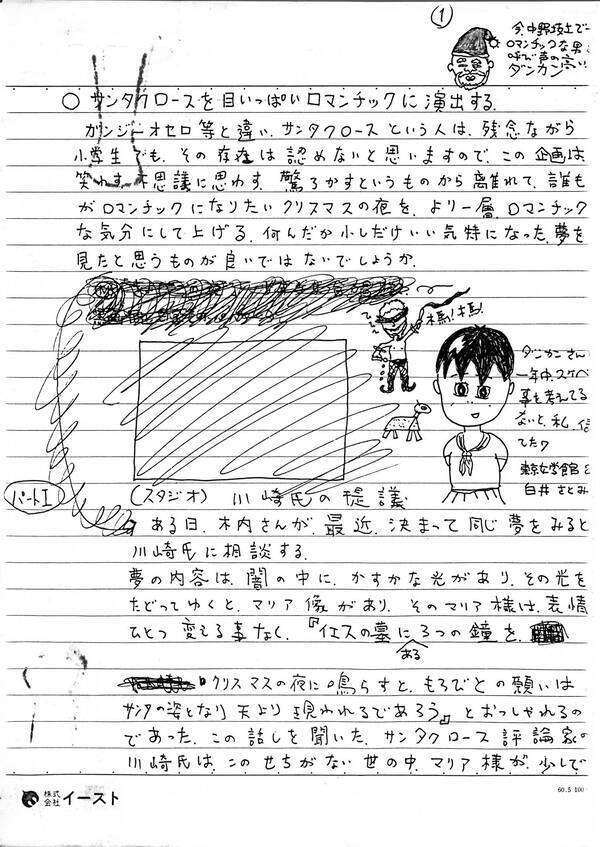 ①
今、中野坂上で一
ロマンチックな男と
呼び声の高い!
ダンカン
○ サンタクロースを目いっぱいロマンチックに演出する。
ガンジーオセロ等と違い、サンタクロースという人は、残念ながら
小学生でも、その存在は認めないと思いますので、この企画は、
笑わす、不思議に思わす、驚ろかすというものから離れて、誰も
がロマンチックになりたいクリスマスの夜を、より一層、ロマンチック
な気分にして上げる、何んだか少しだけいい気特になった、夢を
見たと思うものが良いではないでしょうか。
木馬!木馬!
ダンカンさん
一年中、スケベ
事を考えてる
ないと、私、信
てた?
東京女学館
白井さとみ
パートI
(スタジオ) 川崎氏の提議
ある日、木内さんが、最近、決まって同じ夢をみると
川崎氏に相談する。
夢の内容は、闇の中に、かすかな光があり、その光を
たどってゆくと、マリア像があり、そのマリア様は、表情
ひとつ変える事なく、『イエスの墓に3つの鐘を、
ある
クリスマスの夜に鳴らすと、もろびとの願いは
サンタの姿となり天より現われるであろう』とおっしゃれるの
であった。この話しを聞いた、サンタクロース評論家の
川崎氏は、このせちがない世の中、マリア様が、少しで
株式会社イースト
60.5 100